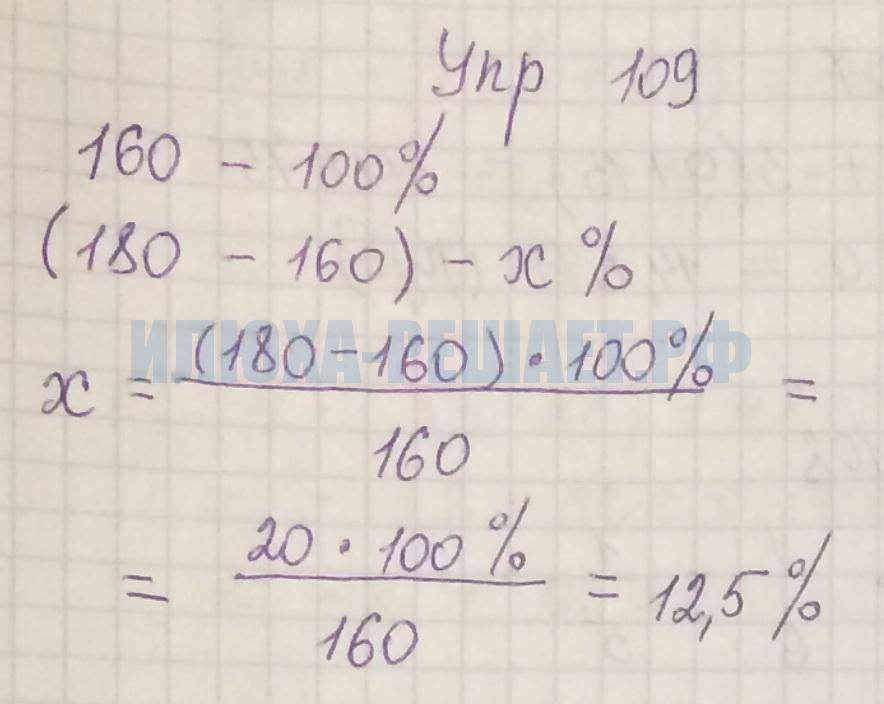 Упр 109
160 - 100%
(180 - 160) - x %
ИЛЮХА-РЕШАЕТ.РФ
x = (180-160) · 100% / 160 =
= 20 · 100% / 160 = 12,5%